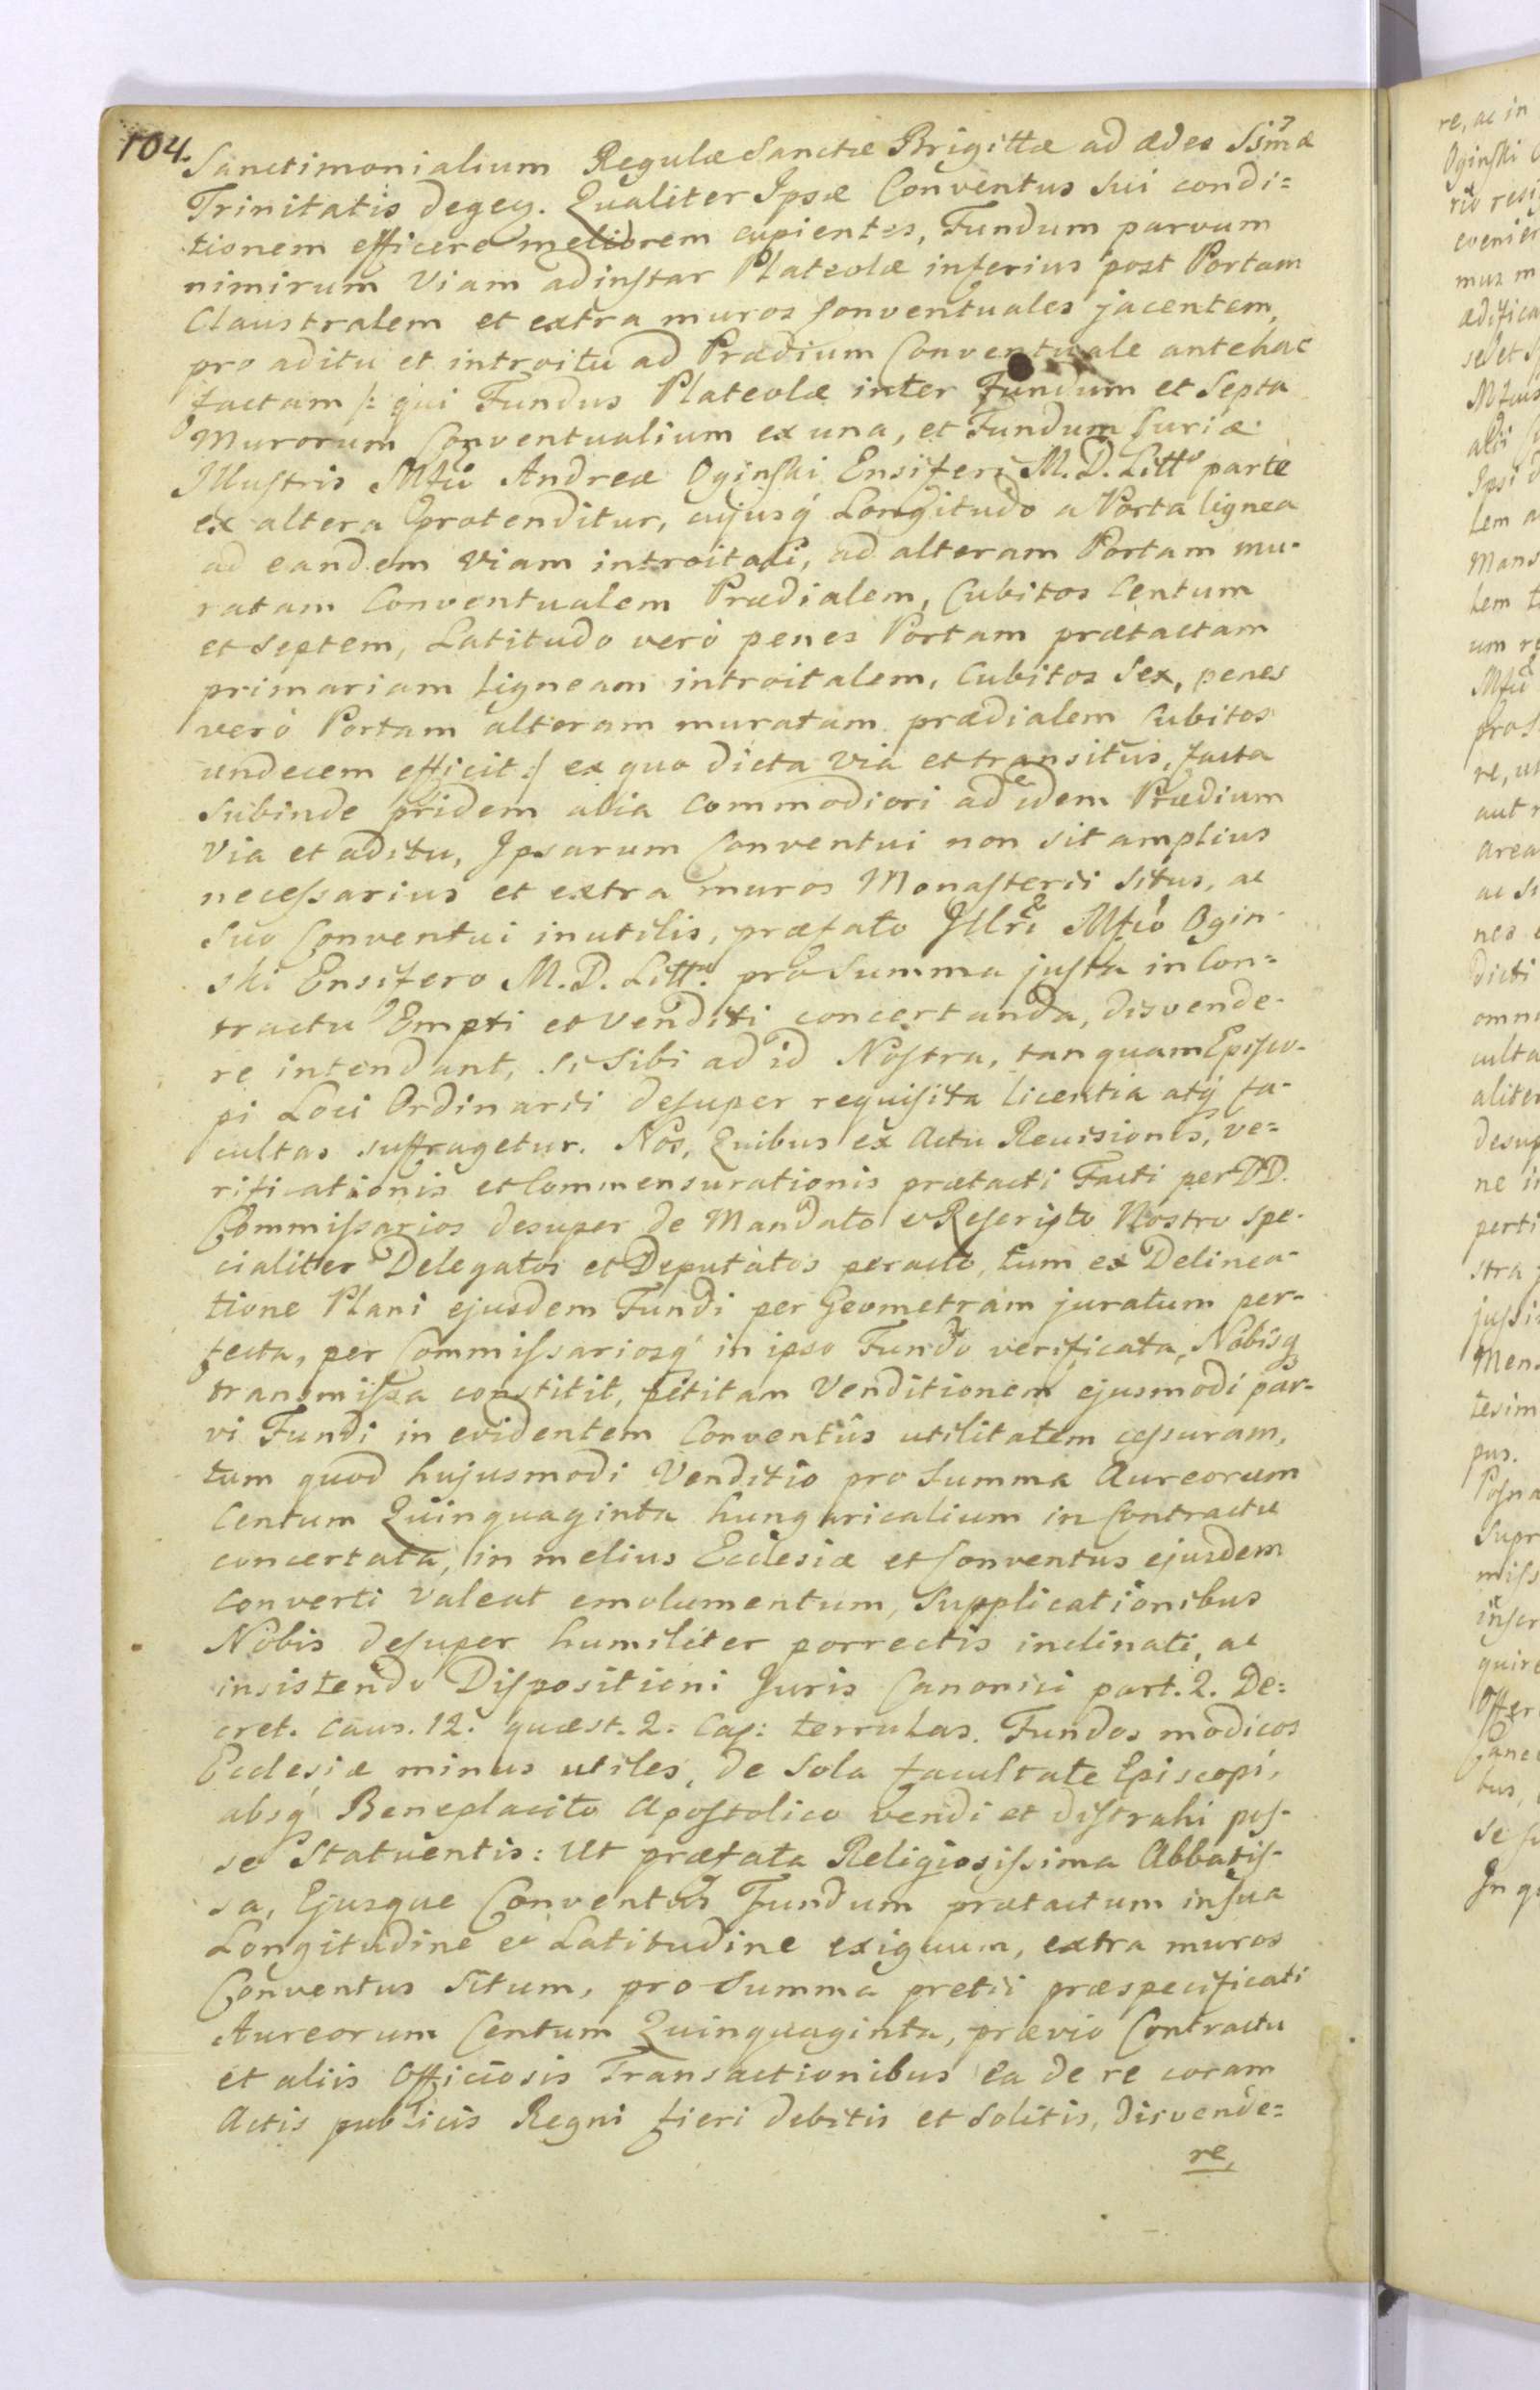 104.
Sanctimonialium Regulæ Sanctæ Brigittæ ad ædes SSmæ
Trinitatis degen. Qualiter Ipsæ Conventus sui condi=
tionem efficere meliorem cupientes, Fundum parvum
nimirum Viam adinstar Plateolæ inferius post Portam
Claustralem et extra muros Conventuales jacentem,
pro aditu et introitu ad Prædium Conventuale antehac
factam /: qui Fundus Plateolæ inter Fundum et Septa
Murorum Conventualium ex una, et Fundum Curiæ
Illustris Mfci Andreæ Oginski Ensiferi M. D. Litt. parte
ex altera protenditur, cujusq́ Longitudo a Porta lignea
ad eandem Viam introitali, ad alteram Portam mu-
ratam Conventualem Prædialem, Cubitos Centum
et Septem, Latitudo verò penes Portam prætactam
primariam Ligneam introitalem, Cubitos Sex, penes
verò Portam alteram muratam prædialem Cubitos
undecem efficit :/ ex quo dicta Via et transitus, facta
subinde pridem alia commodiori ad idem Prædium
Via et aditu, Ipsarum Conventui non sit amplius
necessarius et extra muros Monasterii situs, ac
suo Conventui inutilis, præfato Illri Mfco Ogin-
ski Ensifero M. D. Litt. pro Summa justa in Con=
tractu Empti et Venditi concertanda, disvende-
re intendant, si sibi ad id Nostra, tanquam Episco-
pi Loci Ordinarii desuper requisita licentia atq́ fa-
cultas suffragetur. Nos, Quibus ex Actu Revisionis, ve=
rificationis et Commensurationis prætacti Facti per DD.
Commissarios desuper de Mandato et Rescripto Nostro spe-
cialiter Delegatos et Deputatos peracto, tum ex Delinea-
tione Plani ejusdem Fundi per Geometram juratum per-
fecta, per Commissariosq́ in ipso Fundo verificata, Nobisq́
transmissa constitit, petitam Venditionem ejusmodi par-
vi Fundi in evidentem Conventûs utilitatem cessuram,
tum quod hujusmodi Venditio pro Summa Aureorum
Centum Quinquaginta hungaricalium in Contractu
concertata, in melius Ecclesiæ et Conventus ejusdem
converti valeat emolumentum, Supplicationibus
Nobis desuper humiliter porrectis inclinati, ac
insistendo Dispositioni Juris Canonici part. 2. De=
cret. Caus. 12. quæst. 2. Cap: terrulas. Fundos modicos
Ecclesiæ minus utiles, de sola facultate Episcopi,
absq́ Beneplacito Apostolico vendi et distrahi pos-
se Statuentis: Ut præfata Religiosissima Abbatis-
sa, Ejusque Conventus Fundum prætactum in sua
Longitudine et Latitudine exiguum, extra muros
Conventus situm, pro Summa pretii præspecificati
Aureorum Centum Quinquaginta, prævio Contractu
et aliis Officiosis Transactionibus ea de re coram
Actis publicis Regni fieri debitis et solitis, disvende=
re,